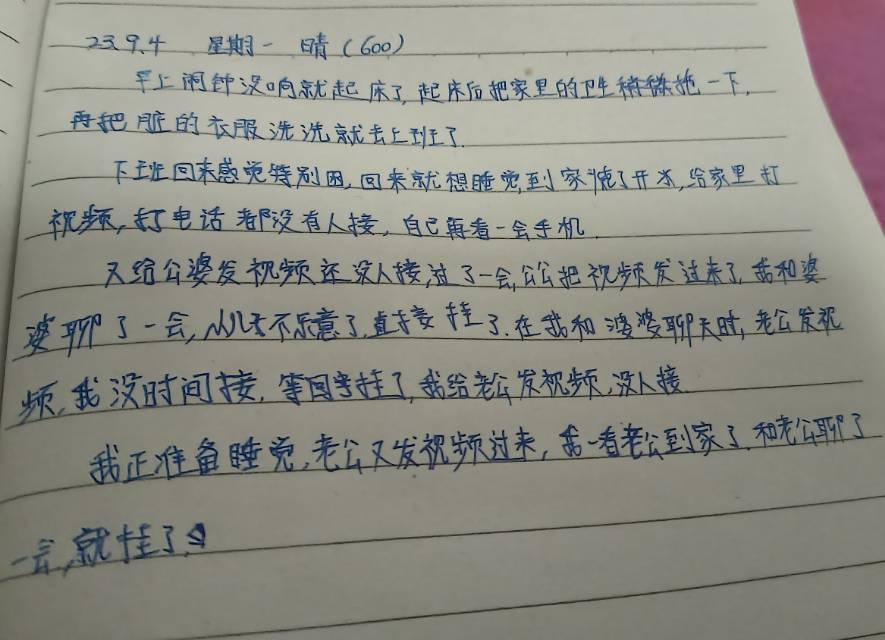 23.9.4 星期一 晴(600)
早上闹钟没响就起床了,起床后把家里的卫生稍稍拖一下,
再把脏的衣服洗洗就去上班了.
下班回来感觉特别困,回来就想睡觉,到家烧了开水,给家里打
视频,打电话都没有人接,自己再看一会手机.
又给公婆发视频还没人接,过了一会,公公把视频发过来了,我和婆
婆聊了一会,儿子不乐意了,直接挂了.在我和婆婆聊天时,老公发视
频,我没时间接,等回完挂了,我给老公发视频,没人接
我正准备睡觉,老公又发视频过来,我一看老公到家了,和老公聊了
一会,就挂了.